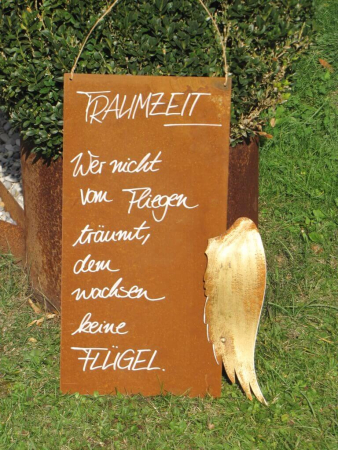 TRAUMZEIT
Wer nicht
vom Fliegen
träumt,
dem
wachsen
keine
FLÜGEL.